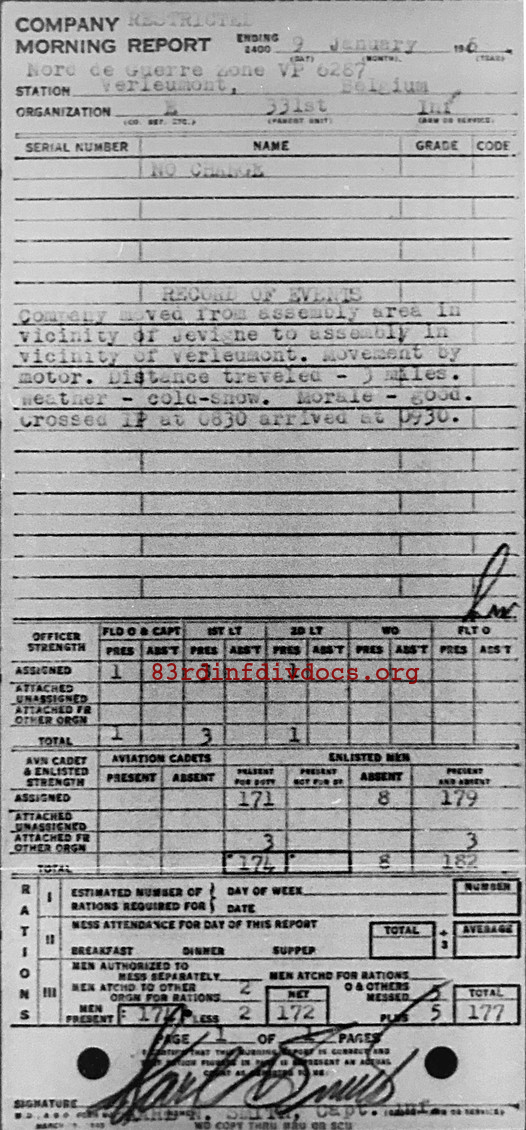 COMPANY RESTRICTED
MORNING REPORT ENDING 2400 9 January 1946
(DAY) (MONTH) (YEAR)
Nord de Guerre Zone VP 6287
STATION Verleumont, Belgium
ORGANIZATION E 331st Inf
(CO. DET. ETC.) (PARENT UNIT) (ARM OR SERVICE)
SERIAL NUMBER NAME GRADE CODE
NO CHANGE
RECORD OF EVENTS
Company moved from assembly area in
vicinity of Jevigne to assembly in
vicinity of Verleumont. Movement by
motor. Distance traveled - 3 miles.
Weather - cold-snow. Morale - good.
Crossed IP at 0830 arrived at 0930.
OFFICER STRENGTH FLD O & CAPT 1ST LT 2D LT WO FLT O
PRES ABS'T PRES ABS'T PRES ABS'T PRES ABS'T PRES ABS'T
ASSIGNED 1 3 1
83rdinfdivdocs.org
ATTACHED UNASSIGNED
ATTACHED FR OTHER ORGN
TOTAL 1 3 1
AVN CADET & ENLISTED STRENGTH AVIATION CADETS ENLISTED MEN
PRESENT ABSENT PRESENT FOR DUTY PRESENT NOT FOR DY ABSENT PRESENT AND ABSENT
ASSIGNED 171 8 179
ATTACHED UNASSIGNED
ATTACHED FR OTHER ORGN 3 3
TOTAL 174 8 182
RATIONS
I ESTIMATED NUMBER OF RATIONS REQUIRED FOR DAY OF WEEK DATE NUMBER
II MESS ATTENDANCE FOR DAY OF THIS REPORT TOTAL ÷ 3 AVERAGE
BREAKFAST DINNER SUPPER
III MEN AUTHORIZED TO MESS SEPARATELY MEN ATCHD FOR RATIONS
MEN ATCHD TO OTHER ORGN FOR RATIONS 2 NET O & OTHERS MESSED 5 TOTAL
MEN PRESENT 174 LESS 2 172 PLUS 5 177
PAGE 1 OF 1 PAGES
I CERTIFY THAT THIS MORNING REPORT IS CORRECT AND
SIGNATURE SMITH, Capt. Inf
W.D., A.G.O. FORM (ARM OR SERVICE)
WD COPY THRU MRU OR SCU